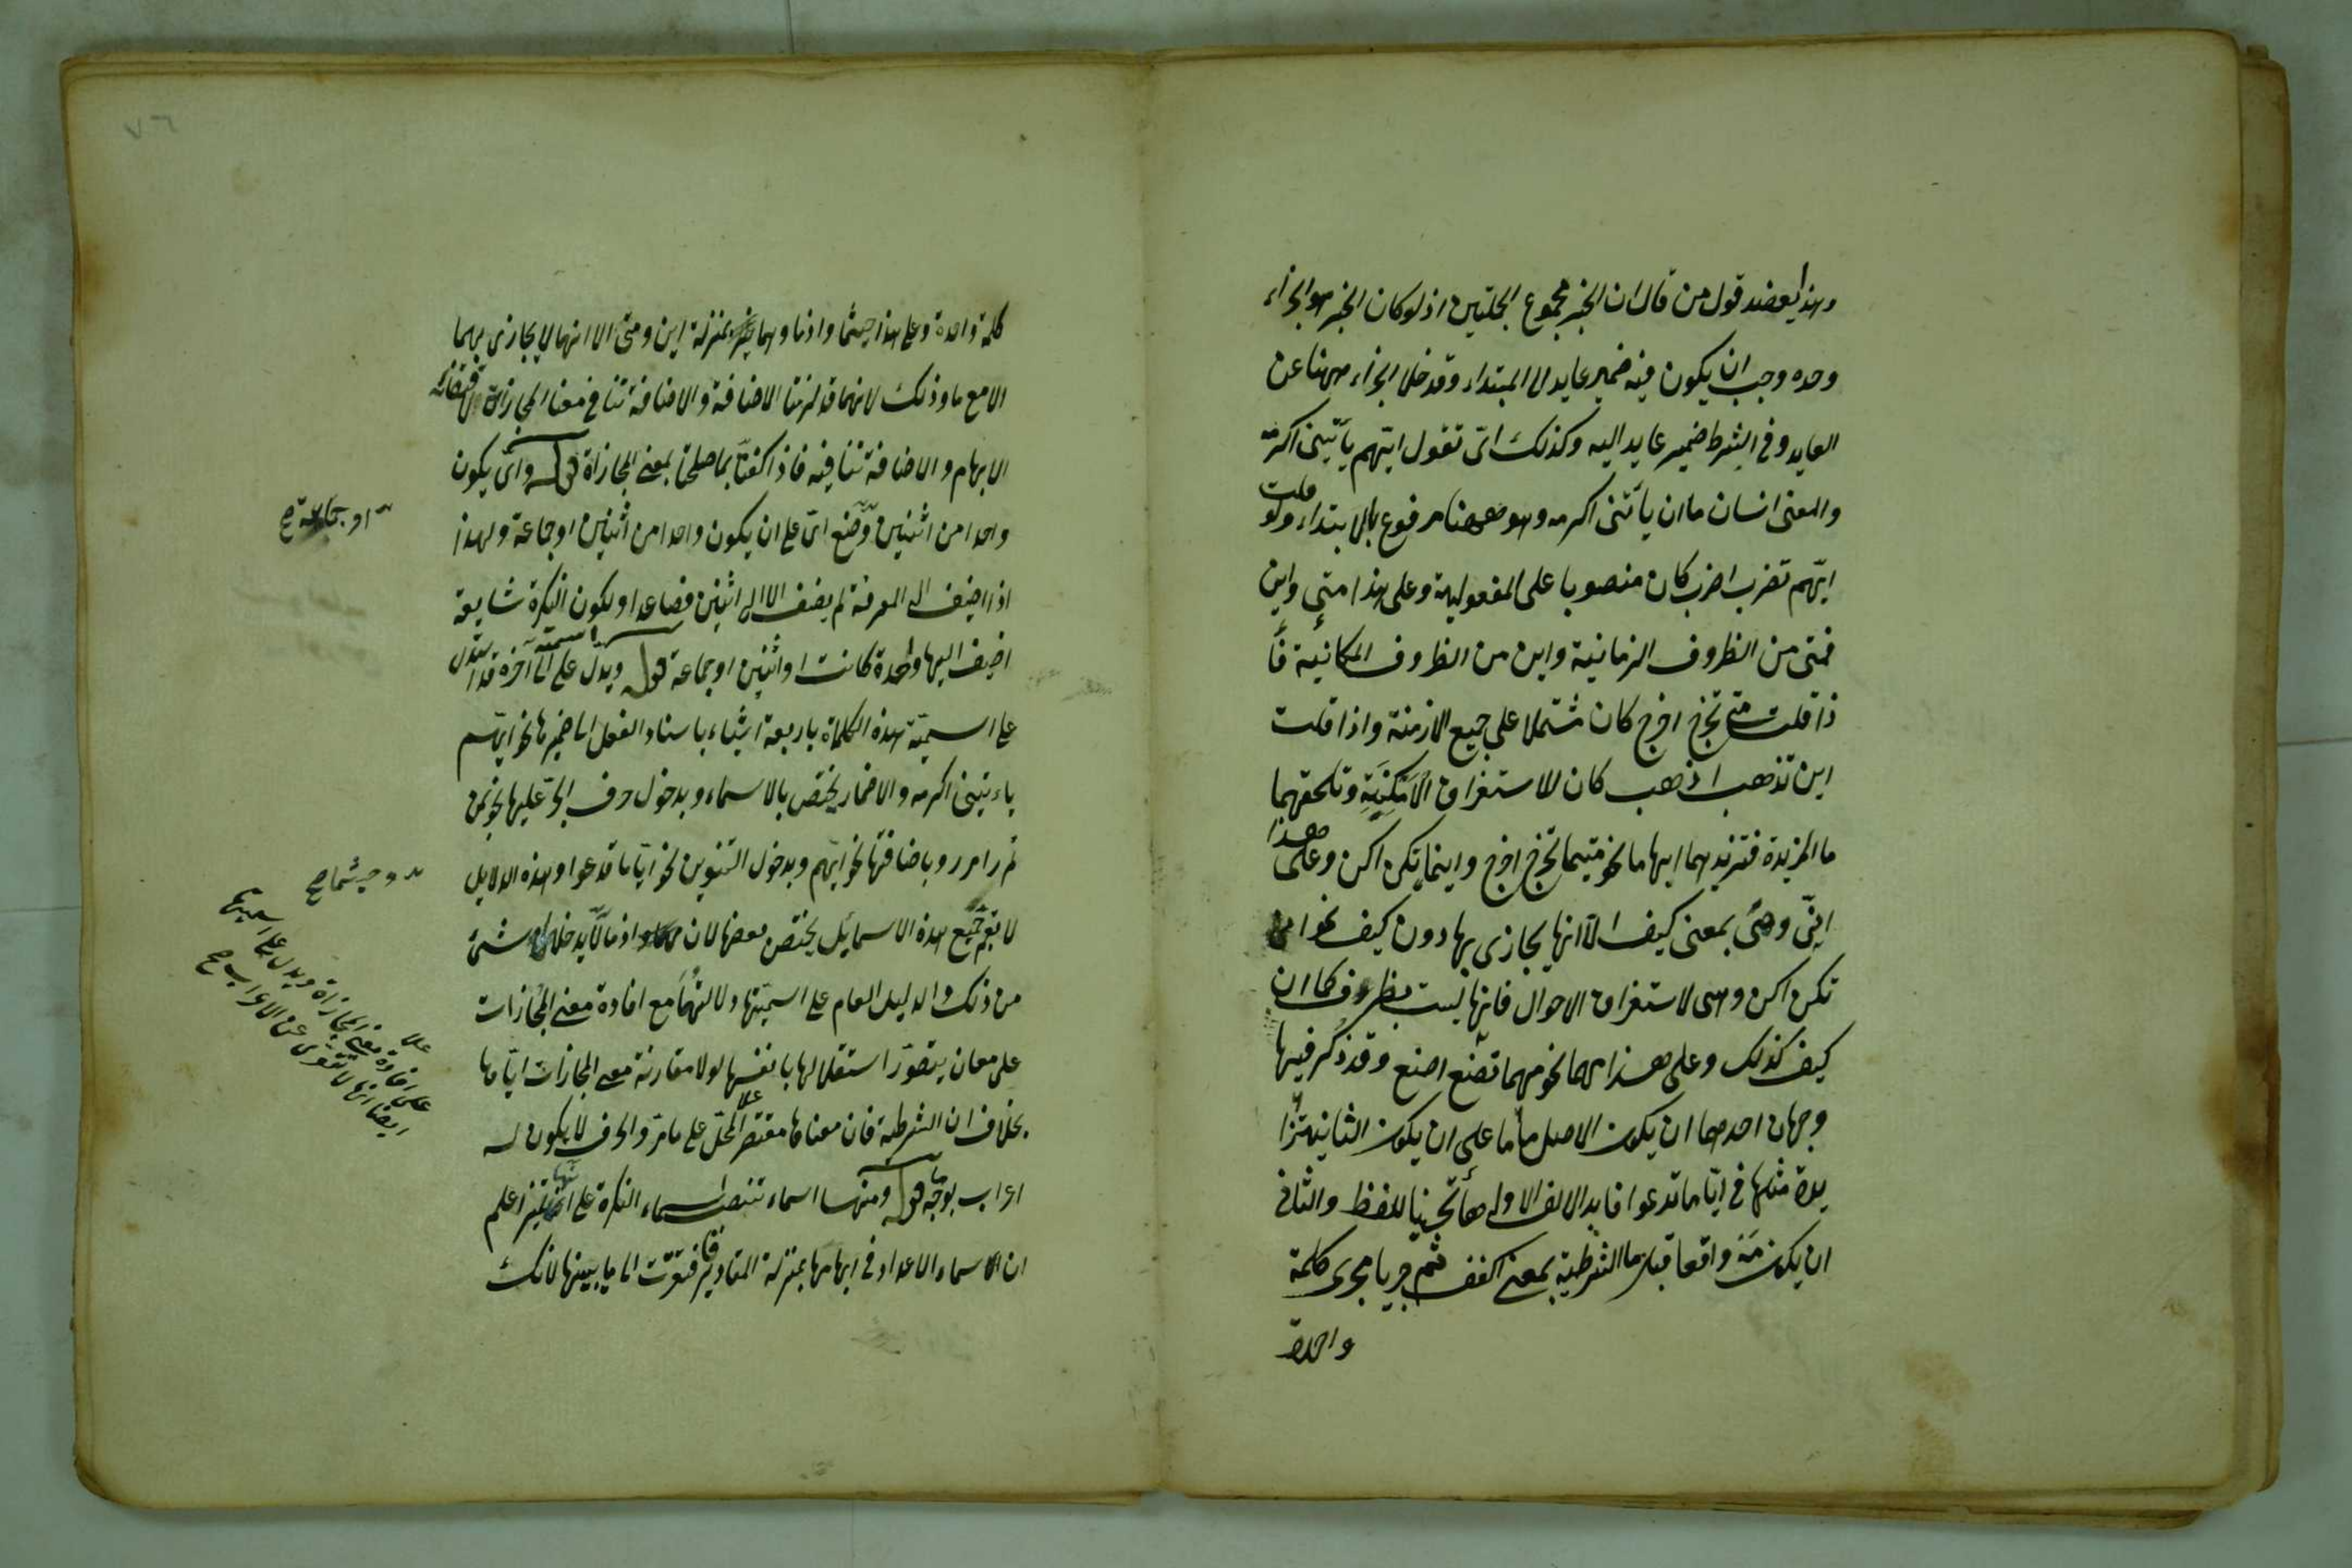 وهذا يعضد قول من قال ان الخبر مجموع الجملتين اذ لو كان الخبر هو الجزاء
وحده وجب ان يكون فيه ضمير عايد الى المبتداء وقد خلا الجزاء ههنا عن
العايد وفى الشرط ضمير عايد اليه وكذلك اىّ تقول ايّهم يأتينى اكرمه
والمعنى انسان ما ان يأتنى اكرمه وهو ههنا مرفوع بالابتداء ولو قلت
ايّهم تضرب اضرب كان منصوبا على المفعولية وعلى هذا متى واين
فمتى من الظروف الزمانية واين من الظروف المكانية فأ
ذا قلت متى تخرج اخرج كان مشتملا على جميع الازمنة واذا قلت
اين تذهب اذهب كان للاستغراق الامكنة وتلحقهما
ما المزيدة فتزيدهما ابهاما نحو متيما تخرج اخرج واينما تكن اكن وعلى هذا
انّى وهى بمعنى كيف الّا انها يجازى بها دون كيف نحو انى
تكن اكن وهى لاستغراق الاحوال فانها ليست بظروف كما ان
كيف كذلك وعلى هذا مهما نحو مهما تصنع اصنع وقد ذكر فيها
وجهان احدهما ان يكون الاصل ماما على ان يكون الثانية مز
يدة مثلها فى ايّا ما تدعوا فابدل الالف الاولى هأ تحسينا للفظ والثانى
ان يكون مَهْ واقعا قبل ما الشرطية بمعنى اكفف ثم جريا مجرى كلمة
واحدة
٧٦
كلمة واحدة وعلى هذا حيثما واذما وهما بمنزلة اين ومتى الا انهما لا يجازى بهما
الا مع ما وذلك لانهما قد لزمتا الاضافة والاضافة تنافى معنى المجازاة لاقتضائه
الابهام والاضافة تنافيه فاذا كفتا بما صلحتا بمعنى المجازاة قوله واىّ يكون
واحدا من اثنين وضع اىّ على ان يكون واحدا من اثنين او جماعة ولهذا
اذا اضيف الى المعرفة لم يضف الا الى اثنين فصاعدا ولكون النكرة شايعة
اضيف اليها واحدة كانت او اثنين او جماعة قوله ويدل على اسميّة الى آخره قد استدل
على اسميّة هذه الكلمات باربعة اشياء باسناد الفعل الى ضميرها نحو ايّهم
ياءتينى اكرمه والاضمار يختص بالاسماء وبدخول حرف الجرّ عليها نحو بمن
تمرر امرر وباضافتها نحو ايّهم وبدخول التنوين نحو ايّا ما تدعوا وهذه الدلايل
لا يعم جميع هذه الاسما بل يختص بعضها لان مهما واذما لا يدخلها شئ
من ذلك والدليل العام على اسميّتها دلالتها مع افادة معنى المجازات
على معان يتصوّر استقلالها بانفسها لولا مقارنة معنى المجازات ايّاها
بخلاف ان الشرطية فان معناها مقتصر على ما مرّ والحرف لا يكون له
اعراب بوجه ما قوله ومنها اسماء تنصب اسماء النكرة على انها تميز اعلم
ان الاسماء الاعداد فى ابهامها بمنزلة المقادير فافتقرت الى ما يبينها لانك
او جماعة صح
وحيثما صح
على افادة معنى المجازاة ويدل على اسميتها
ايضا انها لا تتعرى عن الاعراب صح